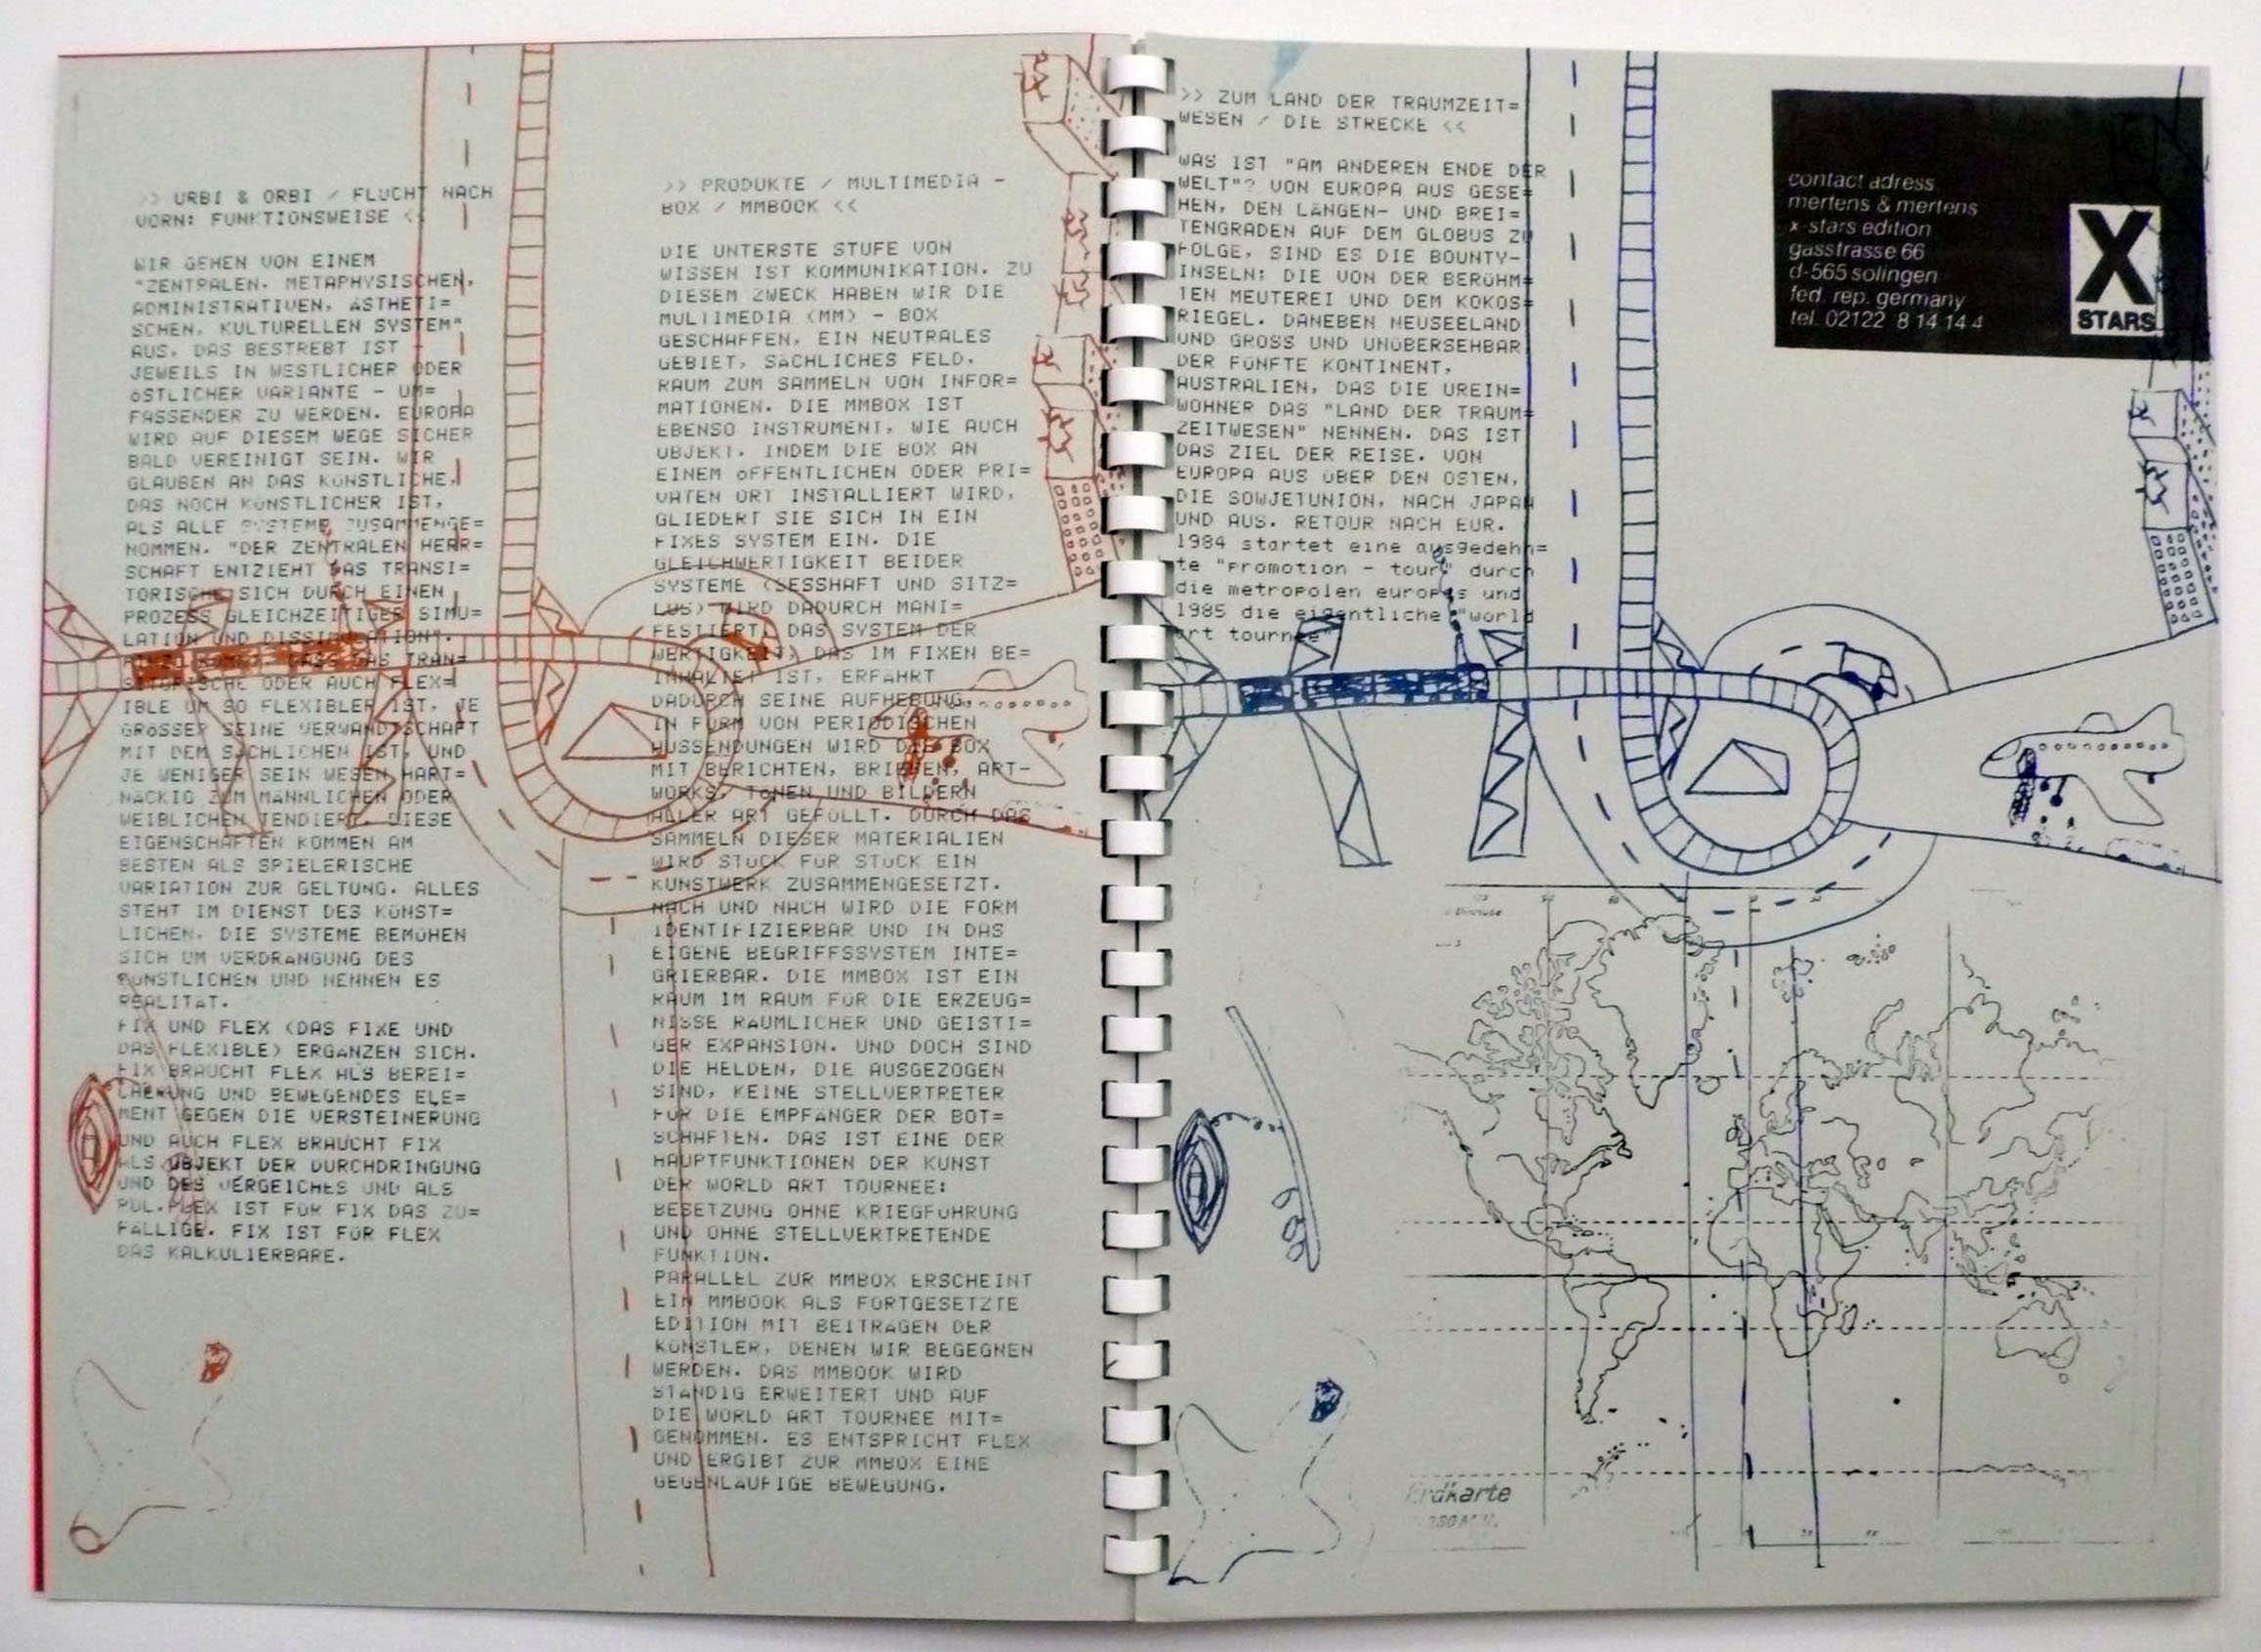 >> URBI & ORBI / FLUCHT NACH
VORN: FUNKTIONSWEISE <<
WIR GEHEN VON EINEM
"ZENTRALEN, METAPHYSISCHEN,
ADMINISTRATIVEN, ÄSTHETI=
SCHEN, KULTURELLEN SYSTEM"
AUS, DAS BESTREBT IST
JEWEILS IN WESTLICHER ODER
ÖSTLICHER VARIANTE - UM=
FASSENDER ZU WERDEN. EUROPA
WIRD AUF DIESEM WEGE SICHER
BALD VEREINIGT SEIN. WIR
GLAUBEN AN DAS KÜNSTLICHE,
DAS NOCH KÜNSTLICHER IST,
ALS ALLE SYSTEME ZUSAMMENGE=
NOMMEN. "DER ZENTRALEN HERR=
SCHAFT ENTZIEHT DAS TRANSI=
TORISCHE SICH DURCH EINEN
PROZESS GLEICHZEITIGER SIMU=
LATION UND DISSIMULATION".
HINZU KOMMT, DASS DAS TRAN=
SITORISCHE ODER AUCH FLEX=
IBLE UM SO FLEXIBLER IST, JE
GRÖSSER SEINE VERWANDTSCHAFT
MIT DEM SÄCHLICHEN IST, UND
JE WENIGER SEIN WESEN HART=
NÄCKIG ZUM MÄNNLICHEN ODER
WEIBLICHEN TENDIERT. DIESE
EIGENSCHAFTEN KOMMEN AM
BESTEN ALS SPIELERISCHE
VARIATION ZUR GELTUNG. ALLES
STEHT IM DIENST DES KÜNST=
LICHEN. DIE SYSTEME BEMÜHEN
SICH UM VERDRÄNGUNG DES
KÜNSTLICHEN UND NENNEN ES
REALITÄT.
FIX UND FLEX (DAS FIXE UND
DAS FLEXIBLE) ERGÄNZEN SICH.
FIX BRAUCHT FLEX ALS BEREI=
CHERUNG UND BEWEGENDES ELE=
MENT GEGEN DIE VERSTEINERUNG
UND AUCH FLEX BRAUCHT FIX
ALS OBJEKT DER DURCHDRINGUNG
UND DES VERGEICHES UND ALS
POL. FLEX IST FÜR FIX DAS ZU=
FÄLLIGE. FIX IST FÜR FLEX
DAS KALKULIERBARE.
>> PRODUKTE / MULTIMEDIA -
BOX / MMBOOK <<
DIE UNTERSTE STUFE VON
WISSEN IST KOMMUNIKATION. ZU
DIESEM ZWECK HABEN WIR DIE
MULTIMEDIA (MM) - BOX
GESCHAFFEN, EIN NEUTRALES
GEBIET, SÄCHLICHES FELD.
RAUM ZUM SAMMELN VON INFOR=
MATIONEN. DIE MMBOX IST
EBENSO INSTRUMENT, WIE AUCH
OBJEKT. INDEM DIE BOX AN
EINEM ÖFFENTLICHEN ODER PRI=
VATEN ORT INSTALLIERT WIRD,
GLIEDERT SIE SICH IN EIN
FIXES SYSTEM EIN. DIE
GLEICHWERTIGKEIT BEIDER
SYSTEME (SESSHAFT UND SITZ=
LOS) WIRD DADURCH MANI=
FESTIERT. DAS SYSTEM DER
WERTIGKEIT, DAS IM FIXEN BE=
INHALTET IST, ERFÄHRT
DADURCH SEINE AUFHEBUNG.
IN FORM VON PERIODISCHEN
AUSSENDUNGEN WIRD DIE BOX
MIT BERICHTEN, BRIEFEN, ART-
WORKS, TÖNEN UND BILDERN
ALLER ART GEFÜLLT. DURCH DAS
SAMMELN DIESER MATERIALIEN
WIRD STÜCK FÜR STÜCK EIN
KUNSTWERK ZUSAMMENGESETZT.
NACH UND NACH WIRD DIE FORM
IDENTIFIZIERBAR UND IN DAS
EIGENE BEGRIFFSSYSTEM INTE=
GRIERBAR. DIE MMBOX IST EIN
RAUM IM RAUM FÜR DIE ERZEUG=
NISSE RÄUMLICHER UND GEISTI=
GER EXPANSION. UND DOCH SIND
DIE HELDEN, DIE AUSGEZOGEN
SIND, KEINE STELLVERTRETER
FÜR DIE EMPFÄNGER DER BOT=
SCHAFTEN. DAS IST EINE DER
HAUPTFUNKTIONEN DER KUNST
DER WORLD ART TOURNEE:
BESETZUNG OHNE KRIEGFÜHRUNG
UND OHNE STELLVERTRETENDE
FUNKTION.
PARALLEL ZUR MMBOX ERSCHEINT
EIN MMBOOK ALS FORTGESETZTE
EDITION MIT BEITRÄGEN DER
KÜNSTLER, DENEN WIR BEGEGNEN
WERDEN. DAS MMBOOK WIRD
STÄNDIG ERWEITERT UND AUF
DIE WORLD ART TOURNEE MIT=
GENOMMEN. ES ENTSPRICHT FLEX
UND ERGIBT ZUR MMBOX EINE
GEGENLÄUFIGE BEWEGUNG.
>> ZUM LAND DER TRAUMZEIT=
WESEN / DIE STRECKE <<
WAS IST "AM ANDEREN ENDE DER
WELT"? VON EUROPA AUS GESE=
HEN, DEN LÄNGEN- UND BREI=
TENGRADEN AUF DEM GLOBUS ZU
FOLGE, SIND ES DIE BOUNTY-
INSELN; DIE VON DER BERÜHM=
TEN MEUTEREI UND DEM KOKOS=
RIEGEL. DANEBEN NEUSEELAND
UND GROSS UND UNÜBERSEHBAR
DER FÜNFTE KONTINENT,
AUSTRALIEN, DAS DIE UREIN=
WOHNER DAS "LAND DER TRAUM=
ZEITWESEN" NENNEN. DAS IST
DAS ZIEL DER REISE. VON
EUROPA AUS ÜBER DEN OSTEN,
DIE SOWJETUNION, NACH JAPAN
UND AUS. RETOUR NACH EUR.
1984 startet eine ausgedehn=
te "promotion - tour" durch
die metropolen europas und
1985 die eigentliche "world
art tournee"
contact adress
mertens & mertens
x-stars edition
gasstrasse 66
d-565 solingen
fed. rep. germany
tel. 02122 8 14 14 4
X
STARS
Erdkarte